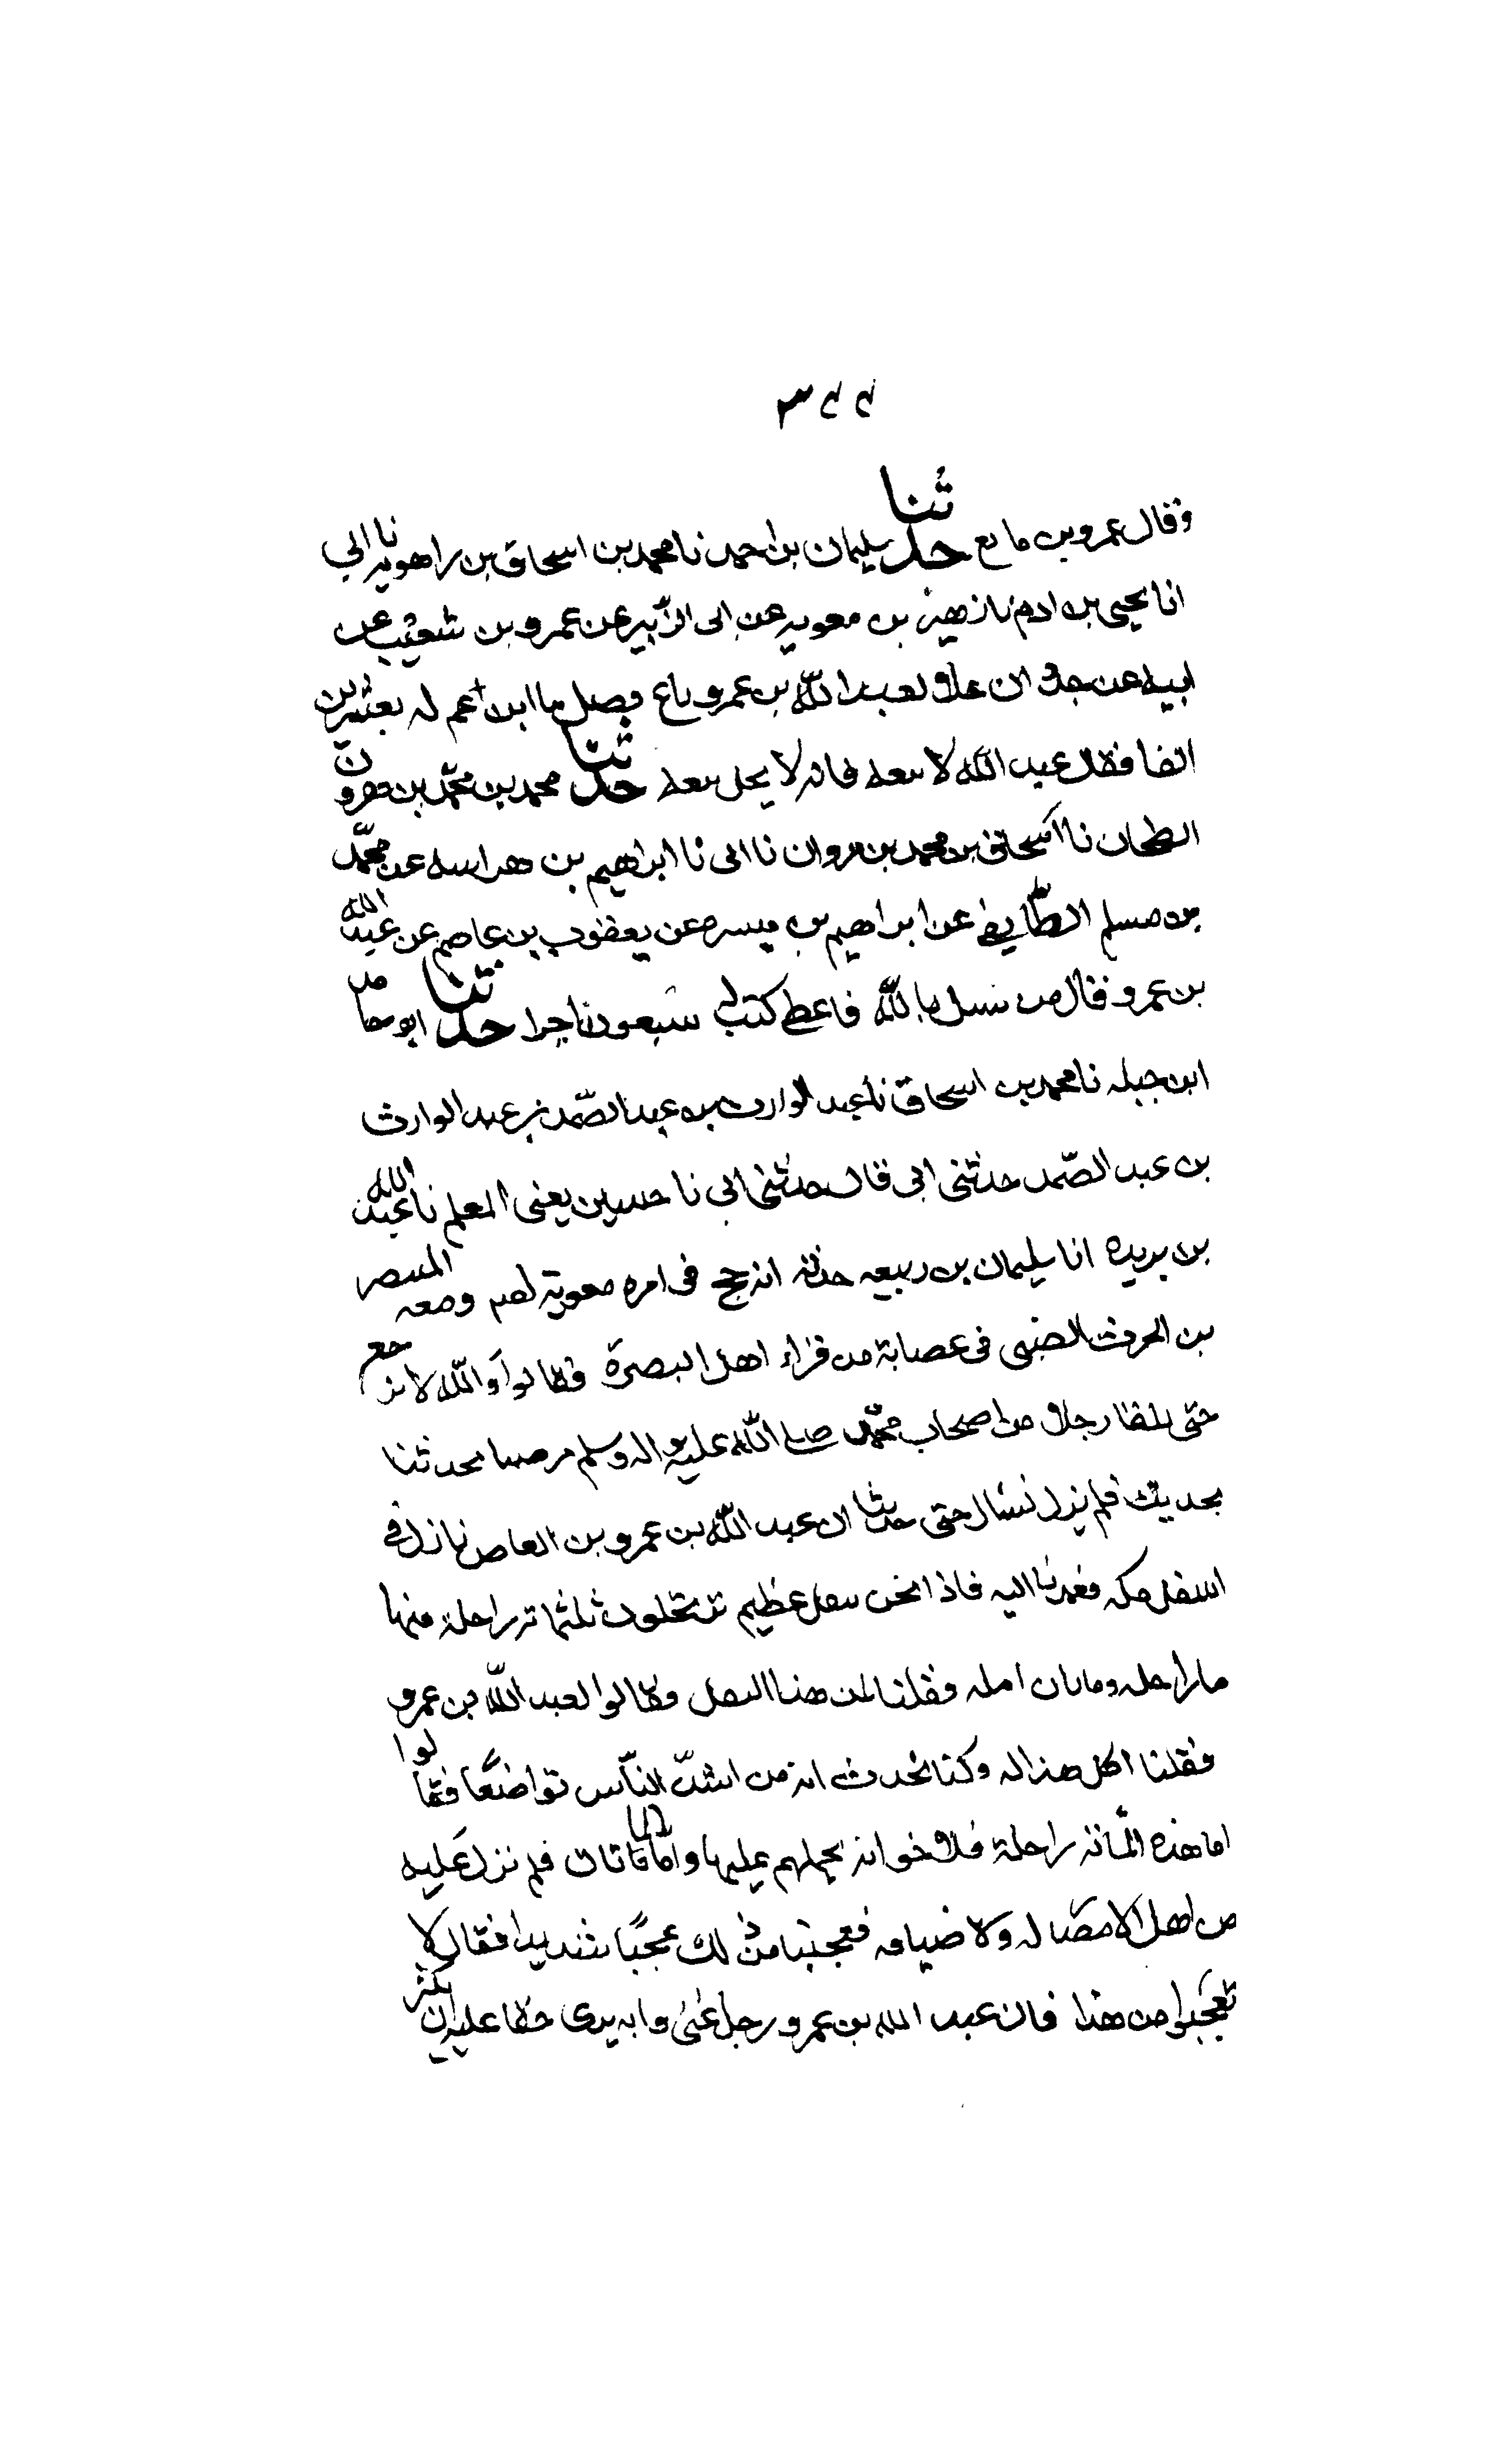 ٣٤٤
وقال عمرو بن مانع حدثنا سليمان بن احمد نا محمد بن اسحاق بن راهويه نا ابي
انا يحيى بن ادم نا زهير بن معويه عن ابى الزّبير عن عمرو بن شعيب عن
ابيه عن جده ان غلاما لعبد اللّه بن عمرو باع فضل ما ابن عم له بعشرين
الفا فقال عبد اللّه لا تبعه فانه لا يحل بيعه حدثنا محمد بن محمّد بن هرون
الطحان نا اسحاق بن محمد بن مروان نا ابى نا ابراهيم بن هراسه عن محمّد
بن مسلم الطّايفي عن ابراهيم بن ميسره عن يعقوب بن عاصم عن عبد الله
بن عمرو قال من سئل باللّه فاعطى كتب له سبعون اجرا حدثنا ابو حامد
ابن جبله نا محمد بن اسحاق نا عبد الوارث بن عبد الصّمد بن عبد الوارث
بن عبد الصّمد حدثنى ابى قال حدثنى ابي نا حسين يعنى المعلم نا عبد الله
بن بريده انا سليمان بن ربيعه حدثه انه حج فى امره معوية ومعه المنتصر
بن الحرث الضبى فى عصابة من قراء اهل البصرة فقالوا واللّه لا نرجع
حتى نلقا رجلا من اصحاب محمّد صلى اللّه عليه واله وسلم مرضيا يحدثنا
بحديث فلم نزل نسئال حتى حدثنا ان عبد اللّه بن عمرو بن العاص نازل فى
اسفل مكه فعمدنا اليه فاذا نحن بثقل عظيم يرتحلون ثلثمائه راحلة منها
مائه راحله ومائتان زامله فقلنا لمن هذا الثقل فقالوا لعبد اللّه بن عمرو
فقلنا اكل هذا له وكنا نحدث انه من اشدّ النّاس تواضعًا فقالوا
اما هذه المائه راحلة فلاخوانه يحملهم عليها واما المائتان فلمن نزل عليه
من اهل الامصار له ولاضيافه فعجبنا من ذلك عجبًا شديدا فقال لا
تعجبوا من هذا فان عبد الله بن عمرو رجل غنى وانه يرى حقا عليه ان يكثر